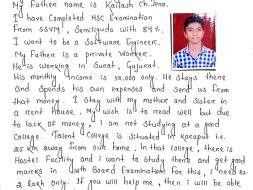 My Father name is Kailash Ch. Jena.
I have Completed HSC Examination
From SSVM, Semiliguda with 84%.
I want to be a Software Engineer.
My Father is a private Worker.
He is working in Surat, Gujurat.
His monthly income is 20,000 only. He stays there
and spends his own expenses and send us from
that money. I stay with my mother and sister in
a rent house. My wish is to read well but due
to lack of money I am not studying at a good
College. Talent College is situated in Koraput i.e.
25 km away from our home. In that college, there is
Hostel Facility and I want to study there and get good
marks in Board Examination For this, I need Rs.
2 lakh only. If you will help me, then i will be able